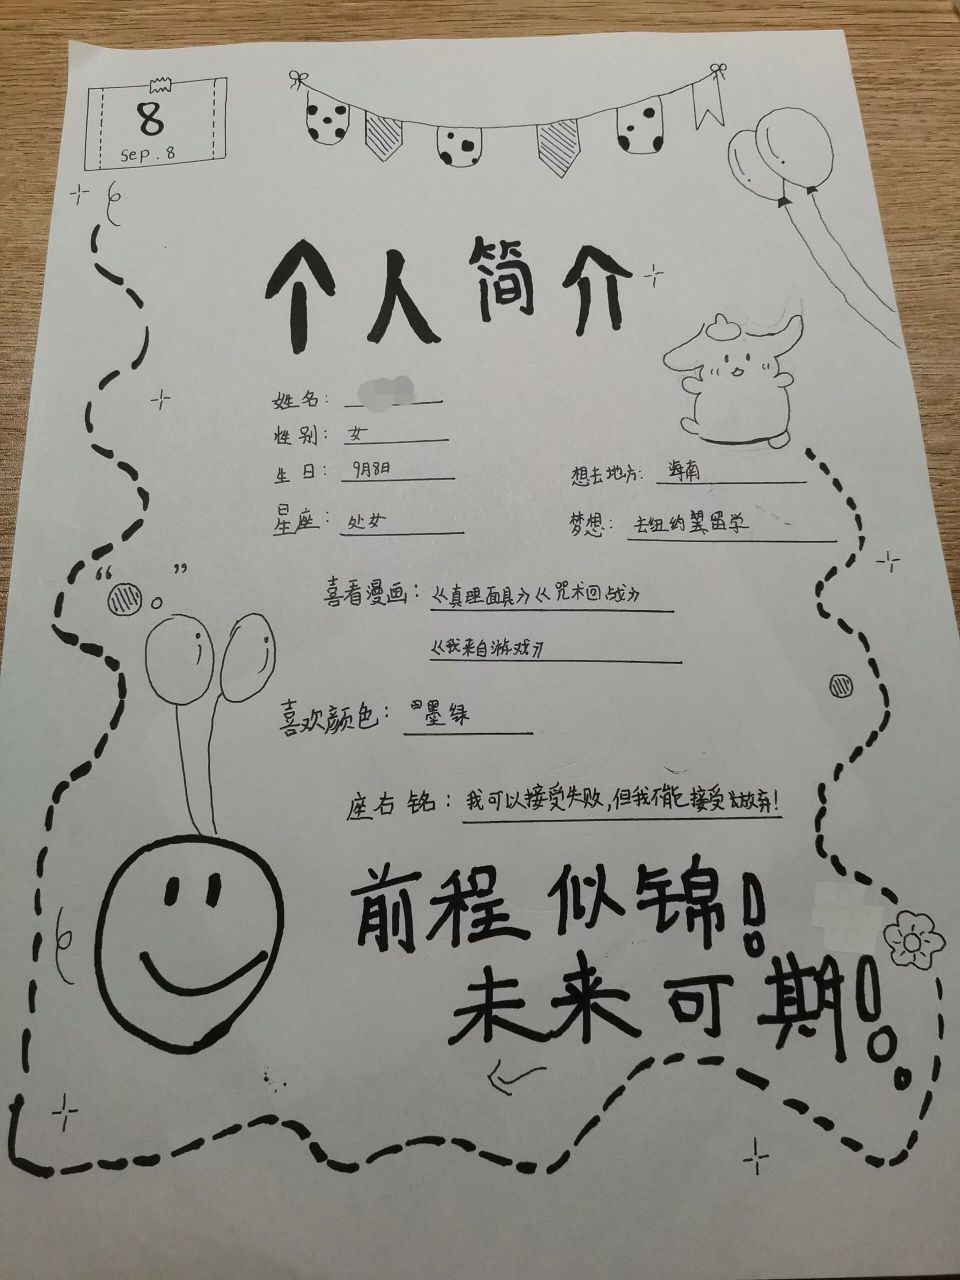 8
sep.8
个人简介
姓名：
性别：女
生日：9月8日
想去地方：海南
星座：处女
梦想：去纽约翼留学
喜看漫画：《真理面具》《咒术回战》
《我来自游戏》
喜欢颜色：墨绿
座右铭：我可以接受失败，但我不能接受放弃！
前程似锦！
未来可期！